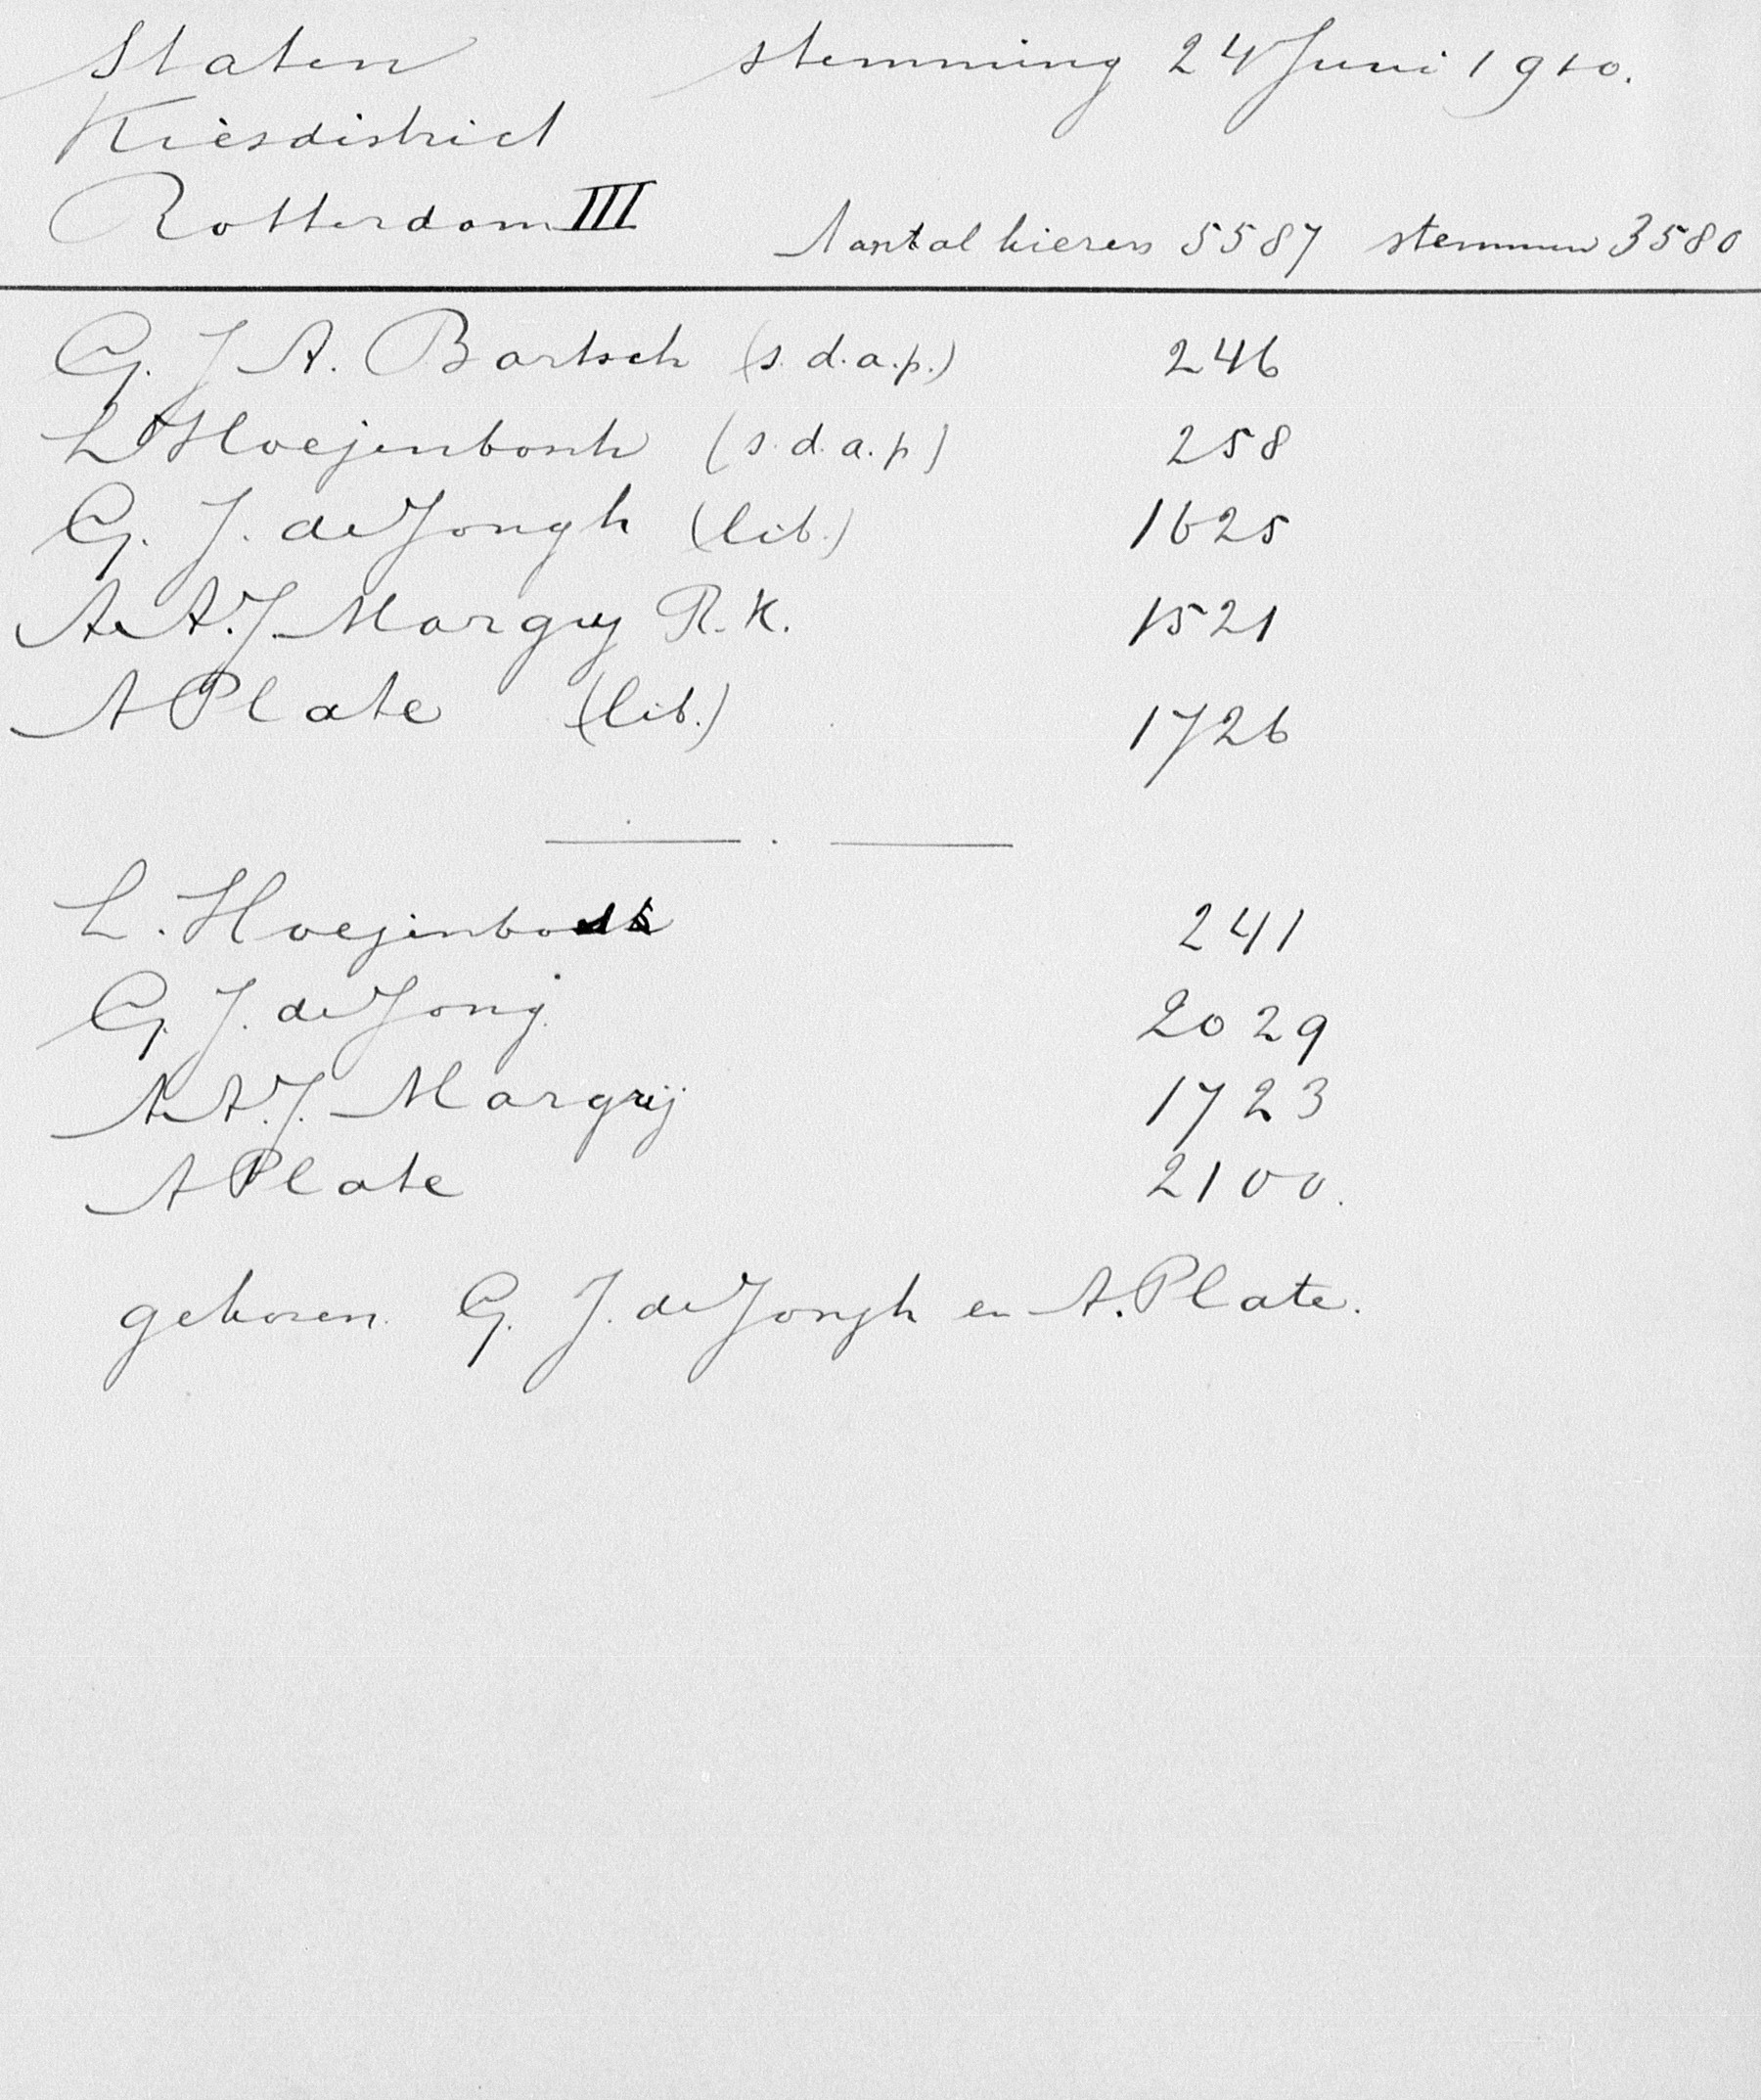 Staten stemming 24 Juni 1910.
Kiesdistrict
Rotterdam III Aantal kiezers 5587 stemmen 3580
G. J A. Bartsch (s. d.a.p.) 246
L Hoejenbosch (s.d.a.p) 258
G. J. de Jongh (lib.) 1625
A. A. J. Margry R.K. 1521
A Plate (lib.) 1726
L. Hoejenbosch 241
G. J. de Jong 2029
A. A. J. Margrij 1723
A Plate 2100.
gekozen. G. J. de Jongh en A. Plate.